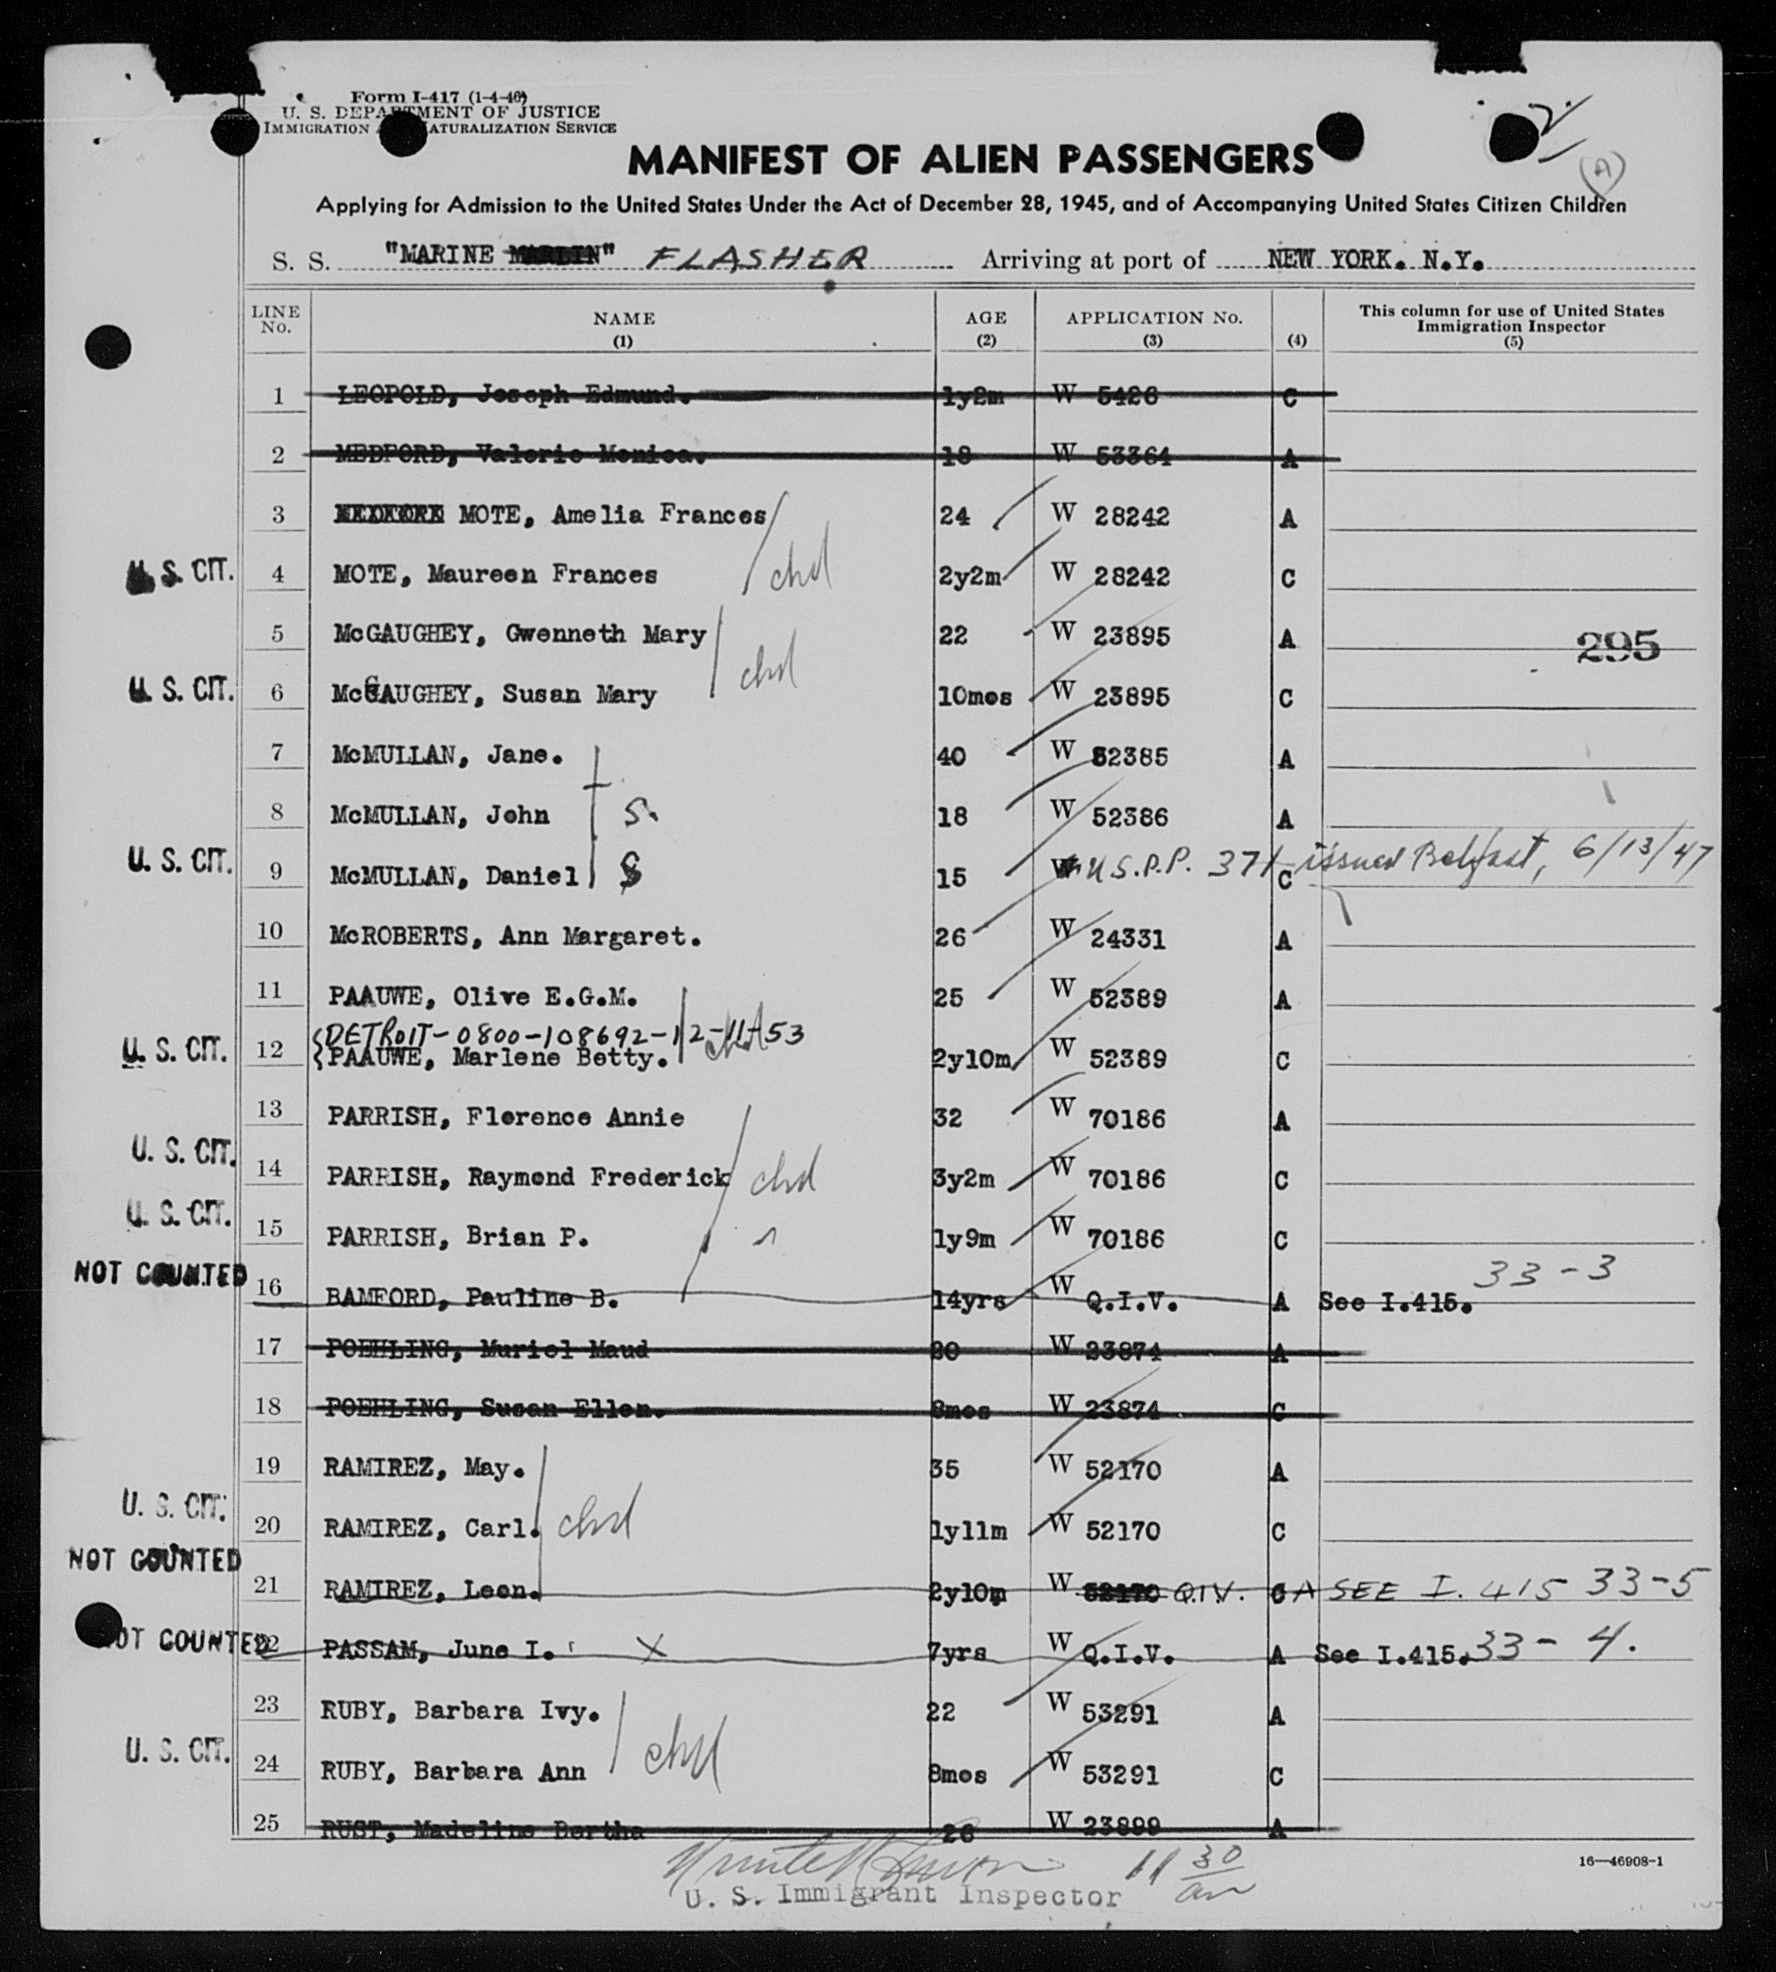 Form I-417 (1-4-46)
U. S. DEPARTMENT OF JUSTICE
IMMIGRATION NATURALIZATION SERVICE
MANIFEST OF ALIEN PASSENGERS
(A)
Applying for Admission to the United States Under the Act of December 28, 1945, and of Accompanying United States Citizen Children
S. S. "MARINE MARLIN" FLASHER Arriving at port of NEW YORK. N.Y.
LINE No. NAME (1) AGE (2) APPLICATION No. (3) (4) This column for use of United States Immigration Inspector (5)
1 LEOPOLD, Joseph Edmund. 1y2m W 5426 C
2 MEDFORD, Valerie Monica. 18 W 53364 A
3 MOTE, Amelia Frances 24 W 28242 A
U. S. CIT. 4 MOTE, Maureen Frances chd 2y2m W 28242 C
5 McGAUGHEY, Gwenneth Mary 22 W 23895 A 295
U. S. CIT. 6 McGAUGHEY, Susan Mary chd 10mos W 23895 C
7 McMULLAN, Jane. 40 W 52385 A
8 McMULLAN, John S. 18 W 52386 A
U. S. CIT. 9 McMULLAN, Daniel S 15 W U.S.P.P. 371 C issued Belfast, 6/13/47
10 McROBERTS, Ann Margaret. 26 W 24331 A
11 PAAUWE, Olive E.G.M. 25 W 52389 A
DETROIT-0800-108692-12-11-53
U. S. CIT. 12 PAAUWE, Marlene Betty. chd 2y10m W 52389 C
13 PARRISH, Florence Annie 32 W 70186 A
U. S. CIT. 14 PARRISH, Raymond Frederick chd 3y2m W 70186 C
U. S. CIT. 15 PARRISH, Brian P. " 1y9m W 70186 C
NOT COUNTED 16 BAMFORD, Pauline B. 14yrs W Q.I.V. A See I.415. 33-3
17 POEHLING, Muriel Maud 20 W 23874 A
18 POEHLING, Susan Ellen. 8mos W 23874 C
19 RAMIREZ, May. 35 W 52170 A
U. S. CIT. 20 RAMIREZ, Carl. chd 1y11m W 52170 C
NOT COUNTED 21 RAMIREZ, Leon. 2y10m W 52170 Q.I.V. C A SEE I. 415 33-5
NOT COUNTED 22 PASSAM, June I. X 7yrs W Q.I.V. A See I.415. 33-4.
23 RUBY, Barbara Ivy. 22 W 53291 A
U. S. CIT. 24 RUBY, Barbara Ann chd 8mos W 53291 C
25 RUST, Madeline Bertha 26 W 23899 A
11 30 am
U. S. Immigrant Inspector
16—46908-1